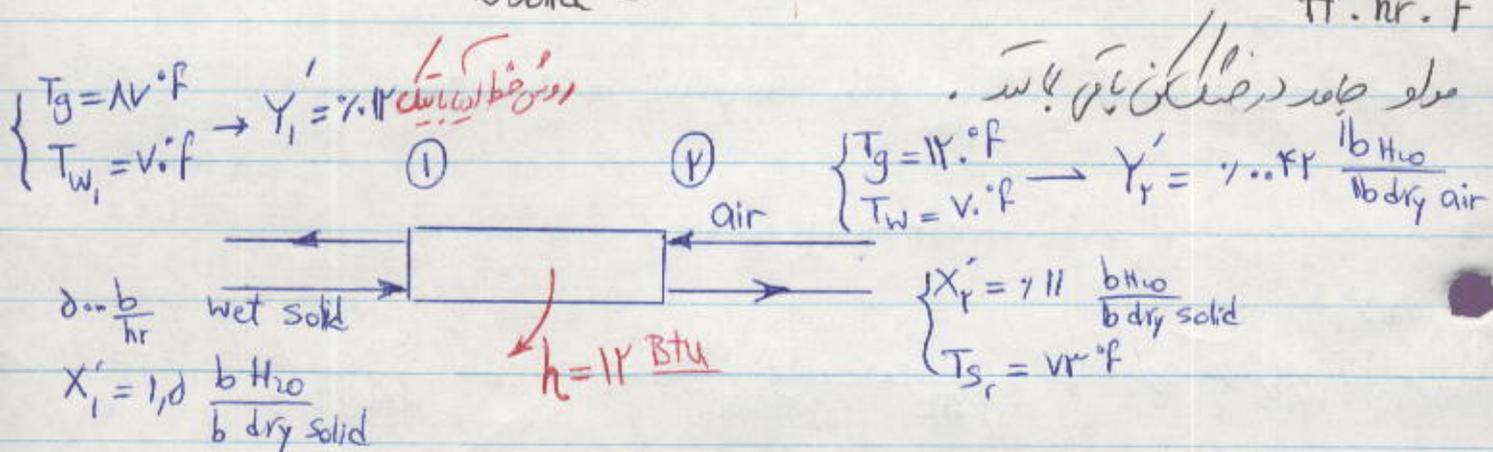 ft . hr . F
مولو جامد در خشک کن باقی باشد .
{ Tg = ۸۷ °F
TW₁ = ۷۰ °F → Y₁′ = ٪۰۱۲ روش خط آدیاباتیک
① ②
{ Tg = ۱۲۰ °F
TW = ۷۰ °F → Y₂′ = ٪۰۰۴۲ lb H₂O / lb dry air
air
۵۰۰ b/hr wet solid
X₁′ = ۱,۵ b H₂O / b dry solid
h = ۱۲ Btu
{ X₂′ = ٪۱۱ b H₂O / b dry solid
TS₂ = ۷۳ °F